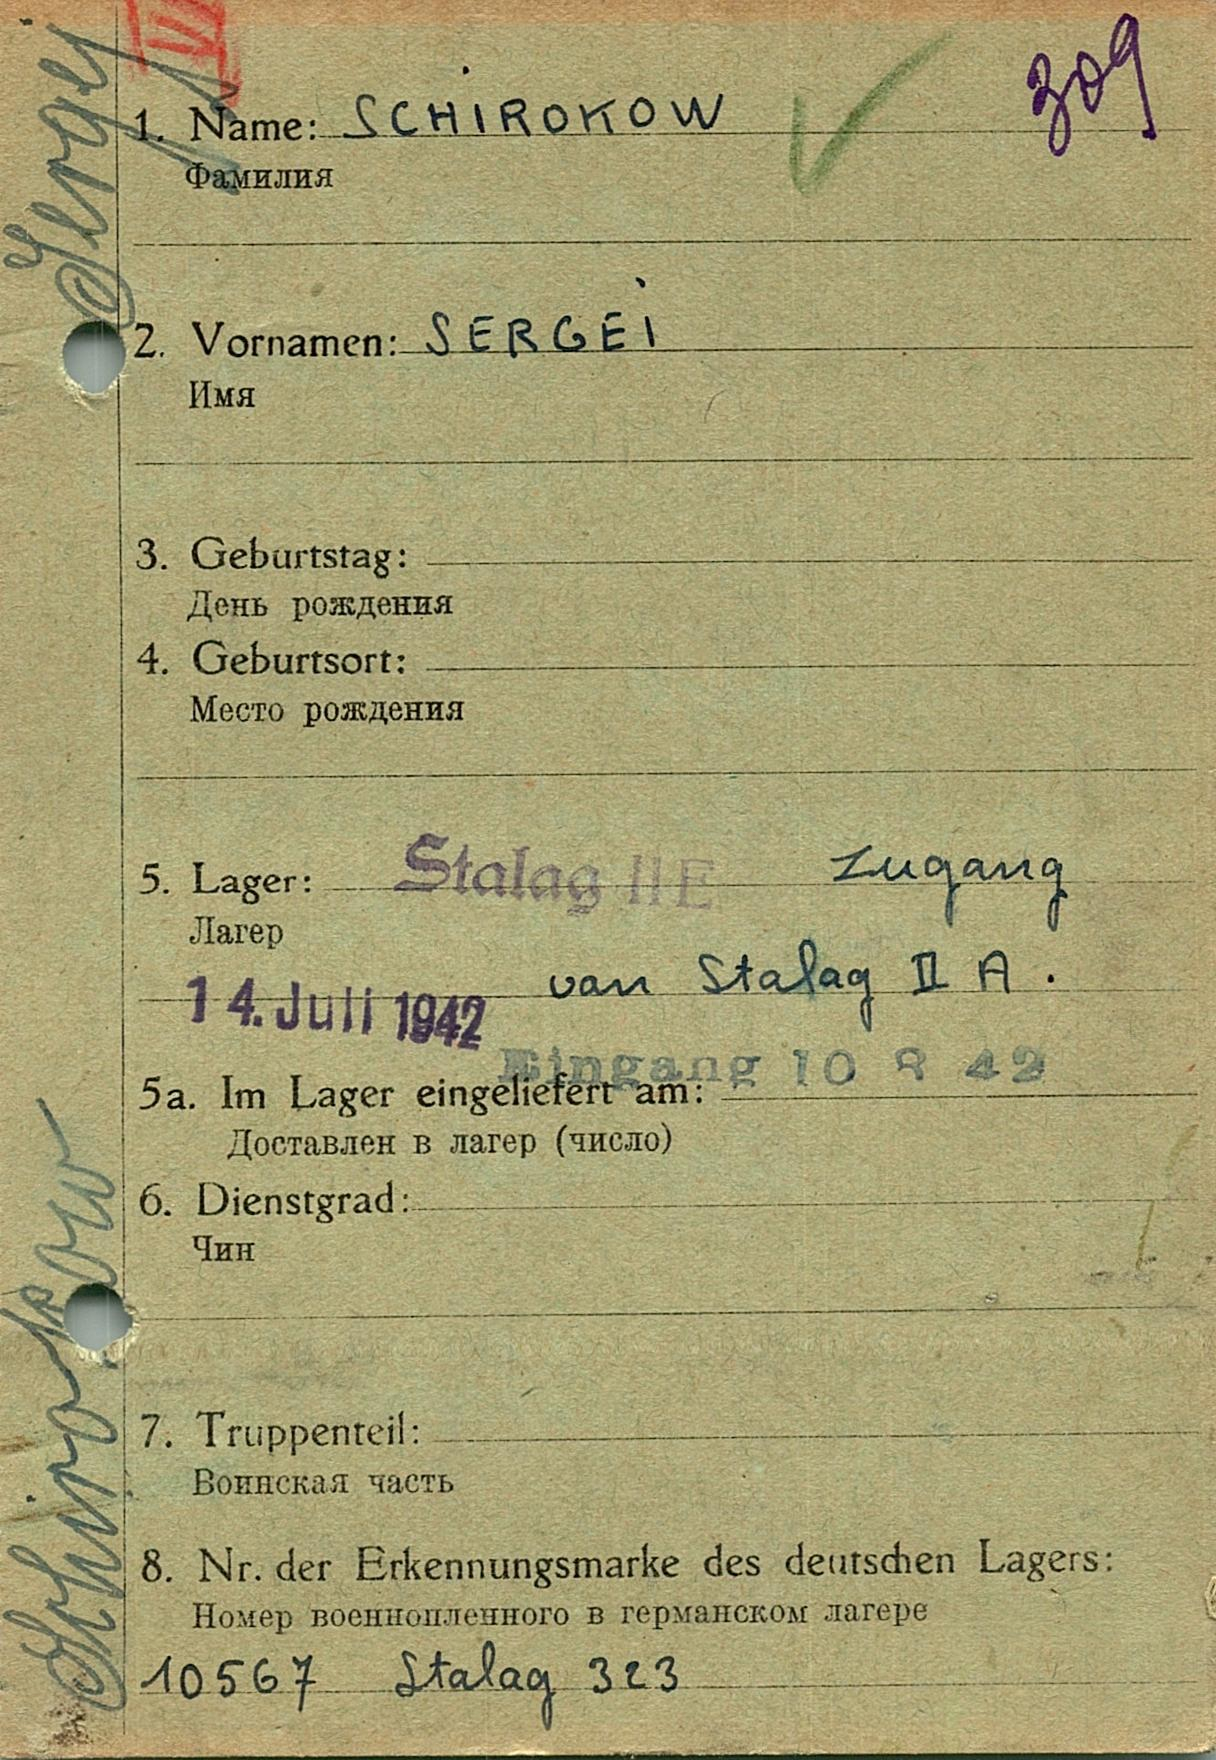 VI
309
1. Name: SCHIROKOW
Фамилия
2. Vornamen: SERGEI
Имя
3. Geburtstag:
День рождения
4. Geburtsort:
Место рождения
5. Lager: Stalag II E Zugang
Лагер
14. Juli 1942 van Stalag II A.
Eingang 10 8 42
5a. Im Lager eingeliefert am:
Доставлен в лагер (число)
6. Dienstgrad:
Чин
7. Truppenteil:
Воинская часть
8. Nr. der Erkennungsmarke des deutschen Lagers:
Номер военнопленного в германском лагере
10567 Stalag 323
Schirokow Sergej